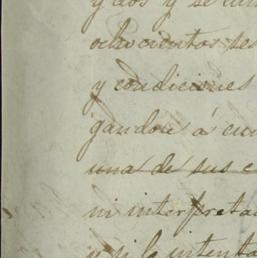 y dos y se
ochocientos ses
y condiciones
gandose á cum
una de sus c
ni interpreta
y si lo intenta